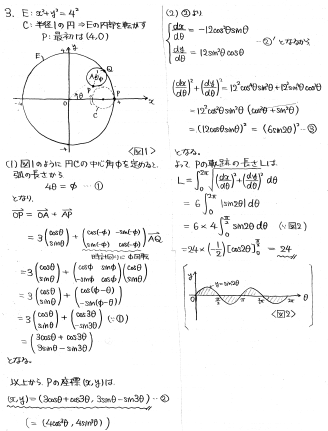 3. E: x²+y²=4²
C: 半径1の円 ⇒ Eの内部を転がす
P: 最初は(4,0)
E
y
4
Q
A
P
θ
O
C
4
x
<図1>
(1) 図1のように円Cの中心角φを定めると、
弧の長さから
4θ = φ …①
となり、
OP = OA + AP
= 3(cosθ sinθ) + (cos(-φ) -sin(-φ) sin(-φ) cos(-φ)) AQ
時計回りにφ回転
= 3(cosθ sinθ) + (cosφ sinφ -sinφ cosφ)(cosθ sinθ)
= 3(cosθ sinθ) + (cos(φ-θ) -sin(φ-θ))
= 3(cosθ sinθ) + (cos3θ -sin3θ) (∵①)
= (3cosθ+cos3θ 3sinθ-sin3θ)
となる。
以上から、Pの座標(x,y)は、
(x,y)=(3cosθ+cos3θ, 3sinθ-sin3θ) …②
(=(4cos³θ, 4sin³θ))
(2) ②より
dx/dθ = -12cos²θsinθ
dy/dθ = 12sin²θcosθ
…②' となるから、
(dx/dθ)²+(dy/dθ)² = 12²cos⁴θsin²θ+12²sin⁴θcos²θ
= 12²cos²θsin²θ (cos²θ+sin²θ)
= (12cosθsinθ)² = (6sin2θ)² …③
となる。
よって Pの軌跡の長さLは、
L = ∫₀^2π √(dx/dθ)²+(dy/dθ)² dθ
= 6∫₀^2π |sin2θ| dθ
= 6×4∫₀^π/2 sin2θ dθ (∵図2)
= 24×(-1/2)[cos2θ]₀^π/2 = 24
y
y=sin2θ
O
π/2
π
3/2π
2π
θ
<図2>